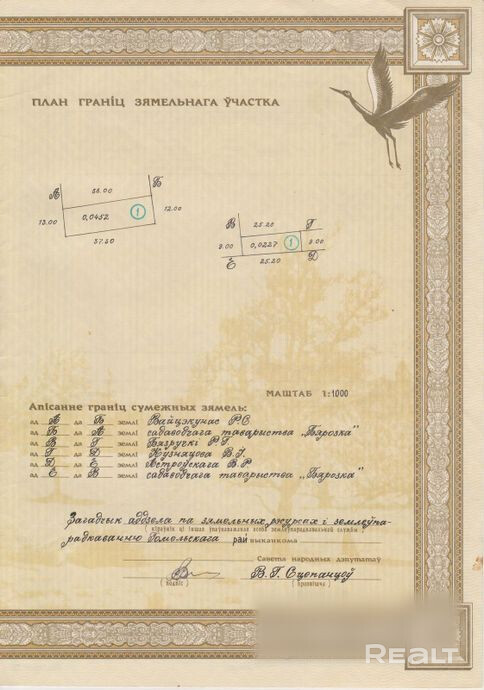 ПЛАН ГРАНІЦ ЗЯМЕЛЬНАГА ЎЧАСТКА
А 38.00 Б
13.00 0,0452 1 12.00
37.50
В 25.20 Г
9.00 0,0227 1 9.00
Е 25.20 Д
МАШТАБ 1:1000
Апісанне граніц сумежных зямель:
ад А да Б землі Р.С
ад Б да А землі садаводчага таварыства „Бярозка"
ад В да Г землі Р.Г
ад Г да Д землі Кузняцова В.І.
ад Д да Е землі Астроўскага В.Р
ад Е да В землі садаводчага таварыства „Бярозка"
Загадчык аддзела па зямельных рэсурсах і землеўпа-
(кіраўнік ці іншая ўпаўнаважаная асоба землеўпарадкавальнай службы)
радкаванню Гомельскага рай выканкома
Савета народных дэпутатаў
В.Г. Сцепанцоў
(подпіс) (прозвішча)
REALT